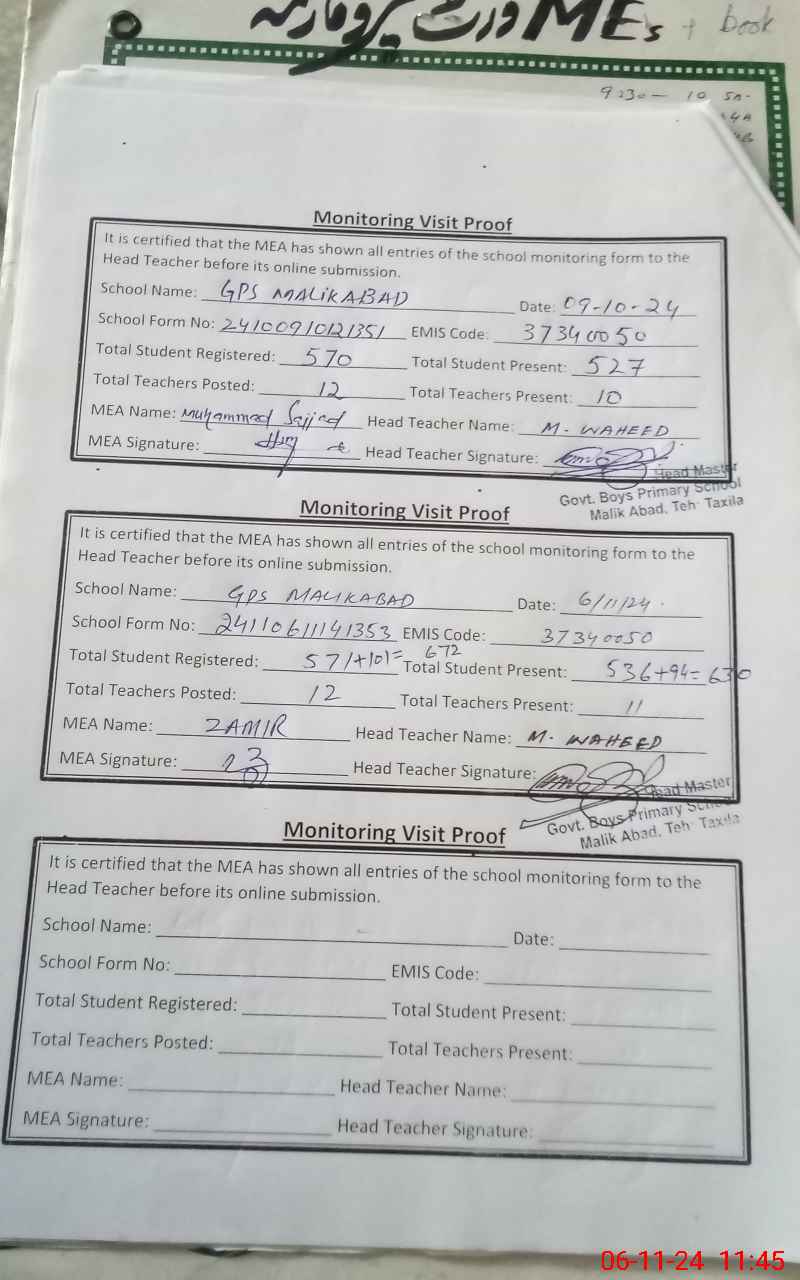 MEs + book
9230 - 10 Sn.
4A
Monitoring Visit Proof
It is certified that the MEA has shown all entries of the school monitoring form to the
Head Teacher before its online submission.
School Name: GPS MALIKABAD Date: 09-10-24
School Form No: 24100910121351 EMIS Code: 37340050
Total Student Registered: 570 Total Student Present: 527
Total Teachers Posted: 12 Total Teachers Present: 10
MEA Name: Muhammad Sajjad Head Teacher Name: M. WAHEED
MEA Signature: Head Teacher Signature:
Head Master
Govt. Boys Primary School
Malik Abad, Teh: Taxila
Monitoring Visit Proof
It is certified that the MEA has shown all entries of the school monitoring form to the
Head Teacher before its online submission.
School Name: GPS MALIKABAD Date: 6/11/24.
School Form No: 24110611141353 EMIS Code: 37340050
Total Student Registered: 571+101= 672 Total Student Present: 536+94= 630
Total Teachers Posted: 12 Total Teachers Present: 11
MEA Name: ZAMIR Head Teacher Name: M. WAHEED
MEA Signature: Head Teacher Signature:
Head Master
Govt. Boys Primary School
Malik Abad, Teh: Taxila
Monitoring Visit Proof
It is certified that the MEA has shown all entries of the school monitoring form to the
Head Teacher before its online submission.
School Name: Date:
School Form No: EMIS Code:
Total Student Registered: Total Student Present:
Total Teachers Posted: Total Teachers Present:
MEA Name: Head Teacher Name:
MEA Signature: Head Teacher Signature:
06-11-24 11:45